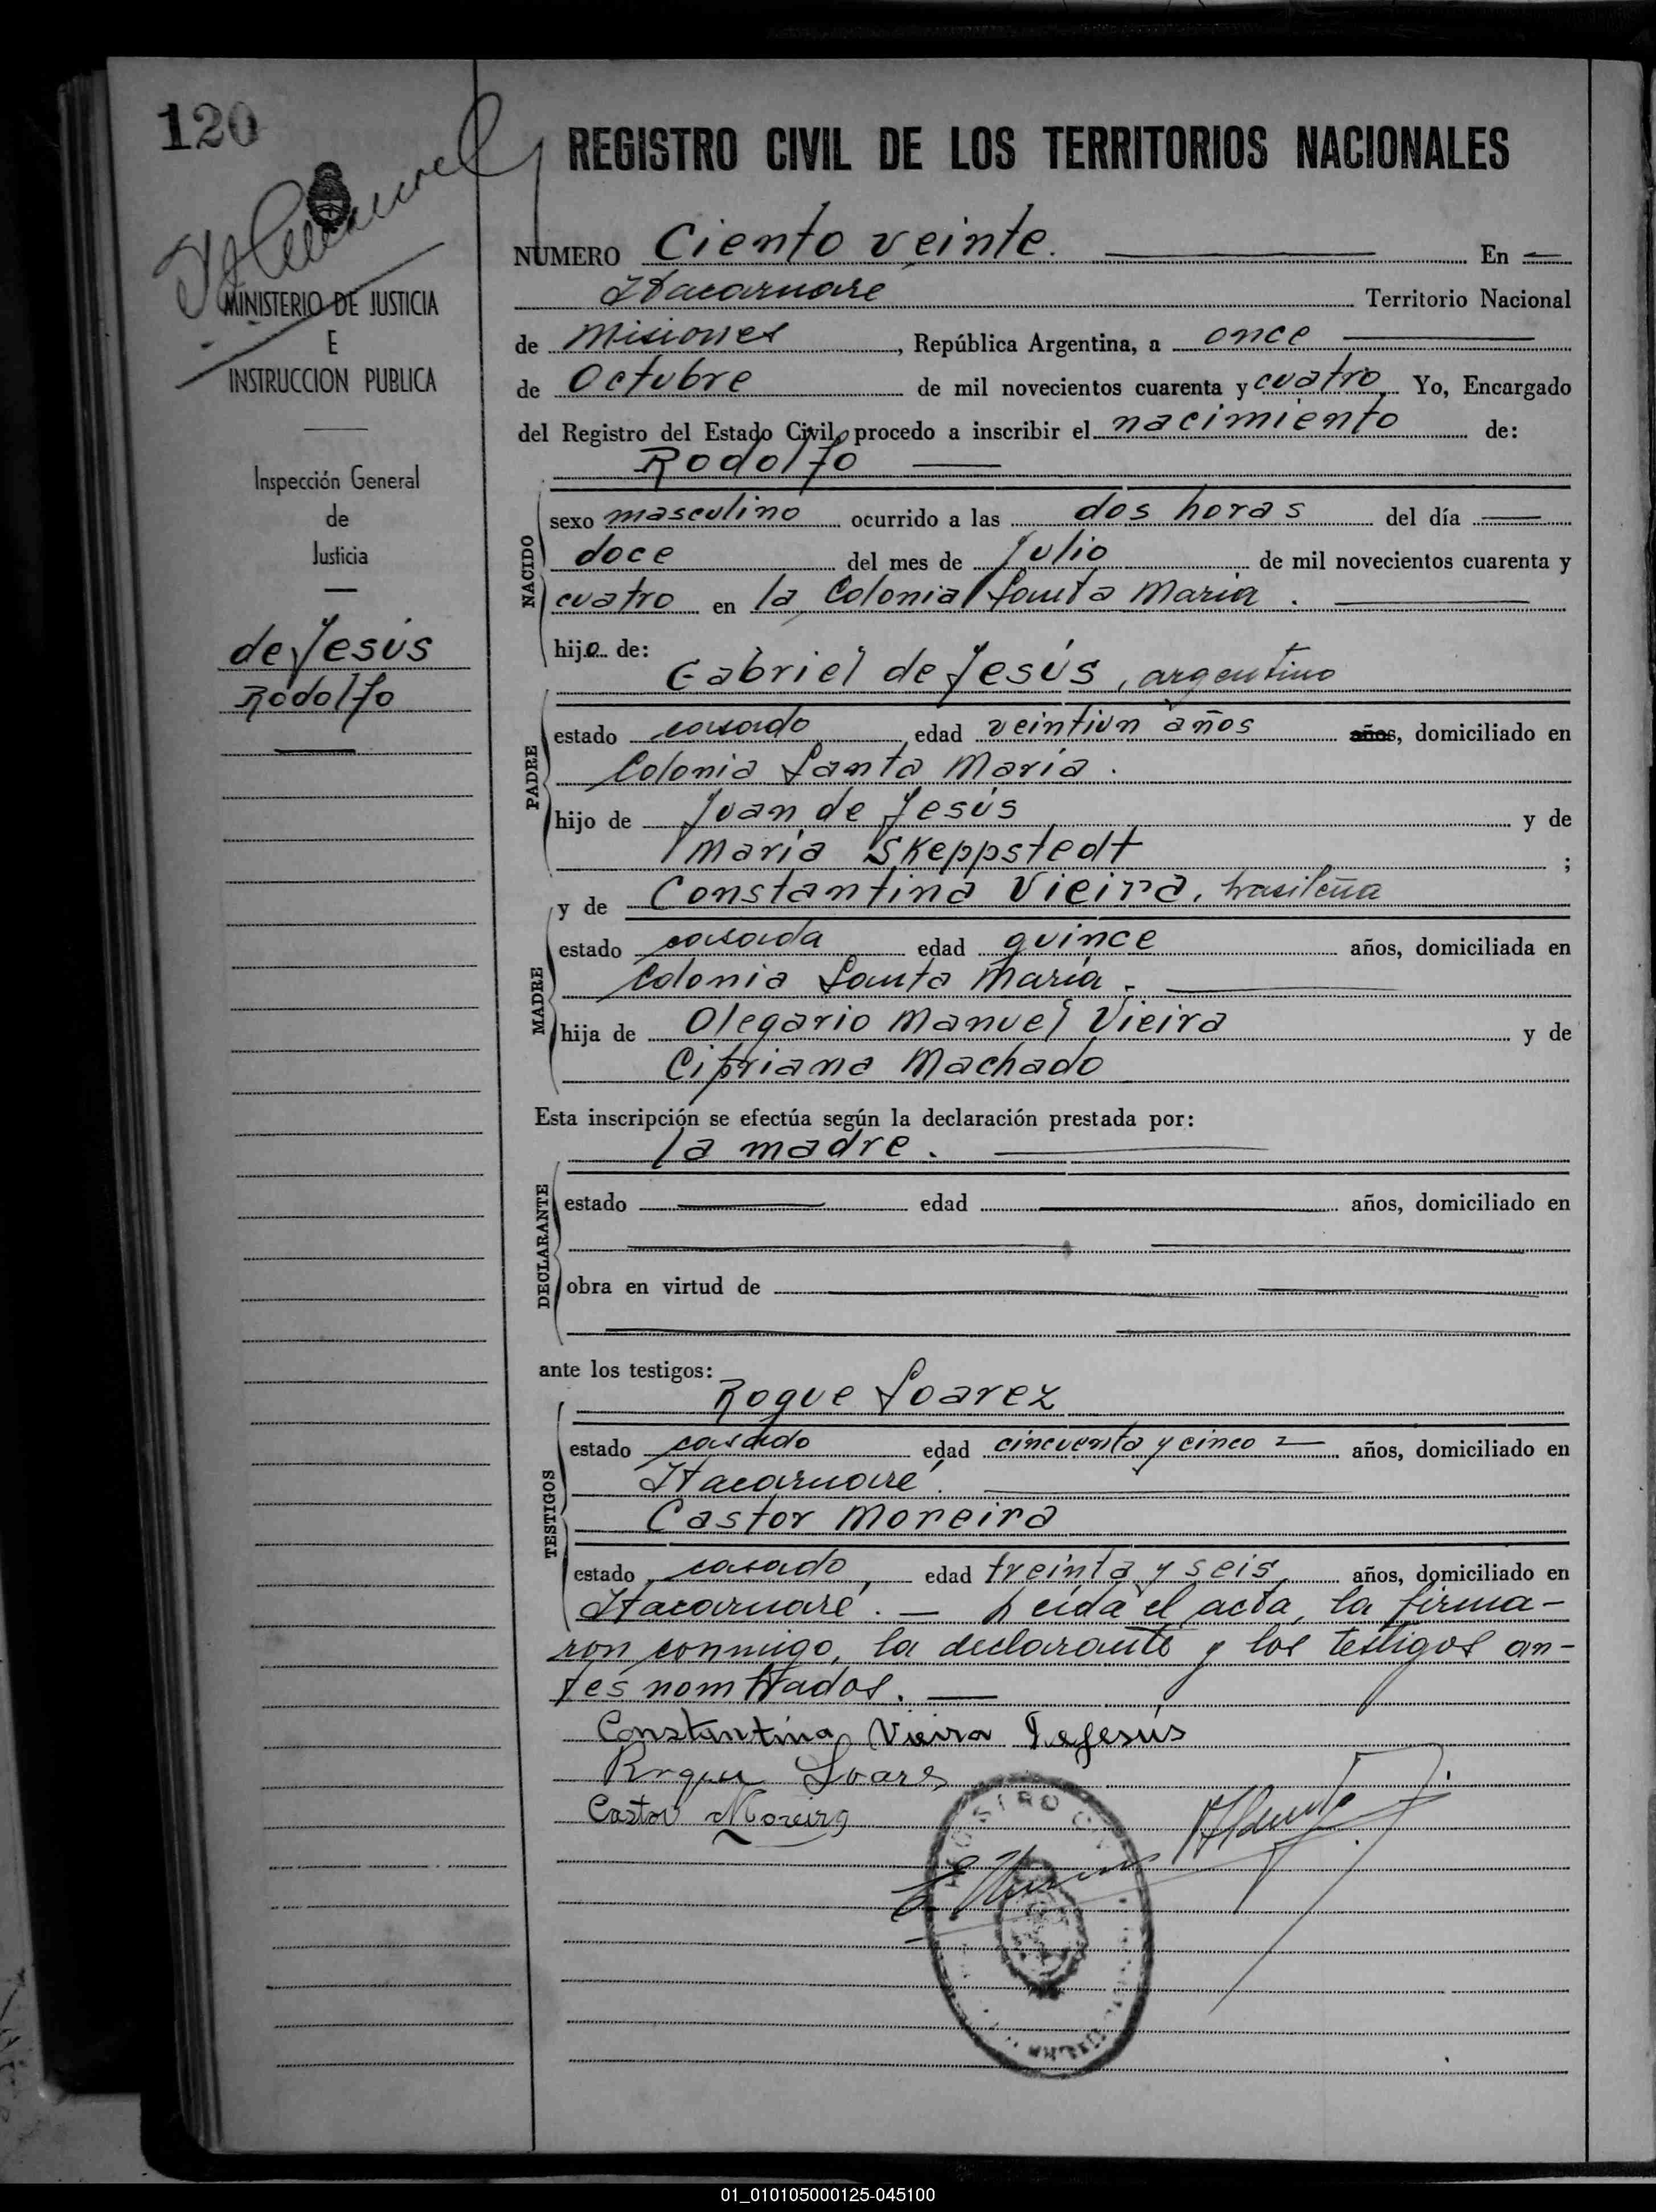 120
REGISTRO CIVIL DE LOS TERRITORIOS NACIONALES
NUMERO Ciento veinte. En
Itacaruaré Territorio Nacional
de Misiones, República Argentina, a once
de Octubre de mil novecientos cuarenta y cuatro Yo, Encargado
del Registro del Estado Civil, procedo a inscribir el nacimiento de:
Rodolfo
MINISTERIO DE JUSTICIA
E
INSTRUCCION PUBLICA
Inspección General
de
Justicia
de Jesús
Rodolfo
NACIDO
sexo masculino ocurrido a las dos horas del día
doce del mes de Julio de mil novecientos cuarenta y
cuatro en la Colonia Santa María.
hijo de:
Gabriel de Jesús, argentino
PADRE
estado casado, edad veintiun años años, domiciliado en
Colonia Santa María.
hijo de Juan de Jesús y de
María Skeppstedt ;
y de Constantina Vieira, brasileña
MADRE
estado casada edad quince años, domiciliada en
Colonia Santa María.
hija de Olegario Manuel Vieira y de
Cipriana Machado
Esta inscripción se efectúa según la declaración prestada por:
la madre.
DECLARANTE
estado edad años, domiciliado en
obra en virtud de
ante los testigos:
Roque Soarez
TESTIGOS
estado casado edad cincuenta y cinco años, domiciliado en
Itacaruaré.
Castor Moreira
estado casado, edad treinta y seis años, domiciliado en
Itacaruaré. — Leída el acta, la firma-
ron conmigo, la declarante y los testigos an-
tes nombrados. —
Constantina Vieira DeJesús
Roque Soares
Castor Moreira
REGISTRO
01_010105000125-045100